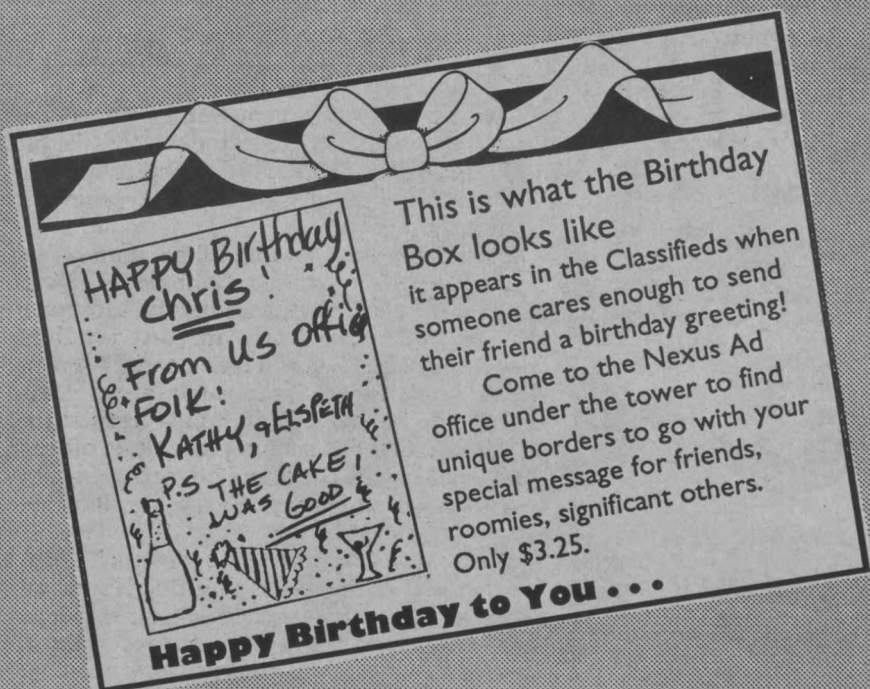 HAPPY Birthday
Chris!
From us office
FOLK!
KATHY, & ELSPETH
P.S THE CAKE
WAS GOOD!
This is what the Birthday
Box looks like
it appears in the Classifieds when
someone cares enough to send
their friend a birthday greeting!
Come to the Nexus Ad
office under the tower to find
unique borders to go with your
special message for friends,
roomies, significant others.
Only $3.25.
Happy Birthday to You . . .